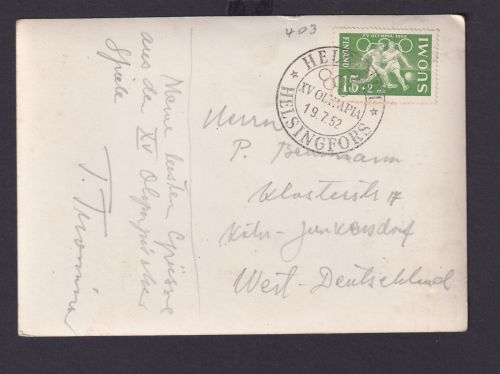 403
XV OLYMPIA 1952
SUOMI
FINLAND
15
+2 mk
HELSINKI
XV OLYMPIA
19.7.52
HELSINGFORS
Meine besten Grüsse
aus der XV Olympischen
Spiele
Herrn
P.
Klosterstr 17
Köln-Junkersdorf
West-Deutschland